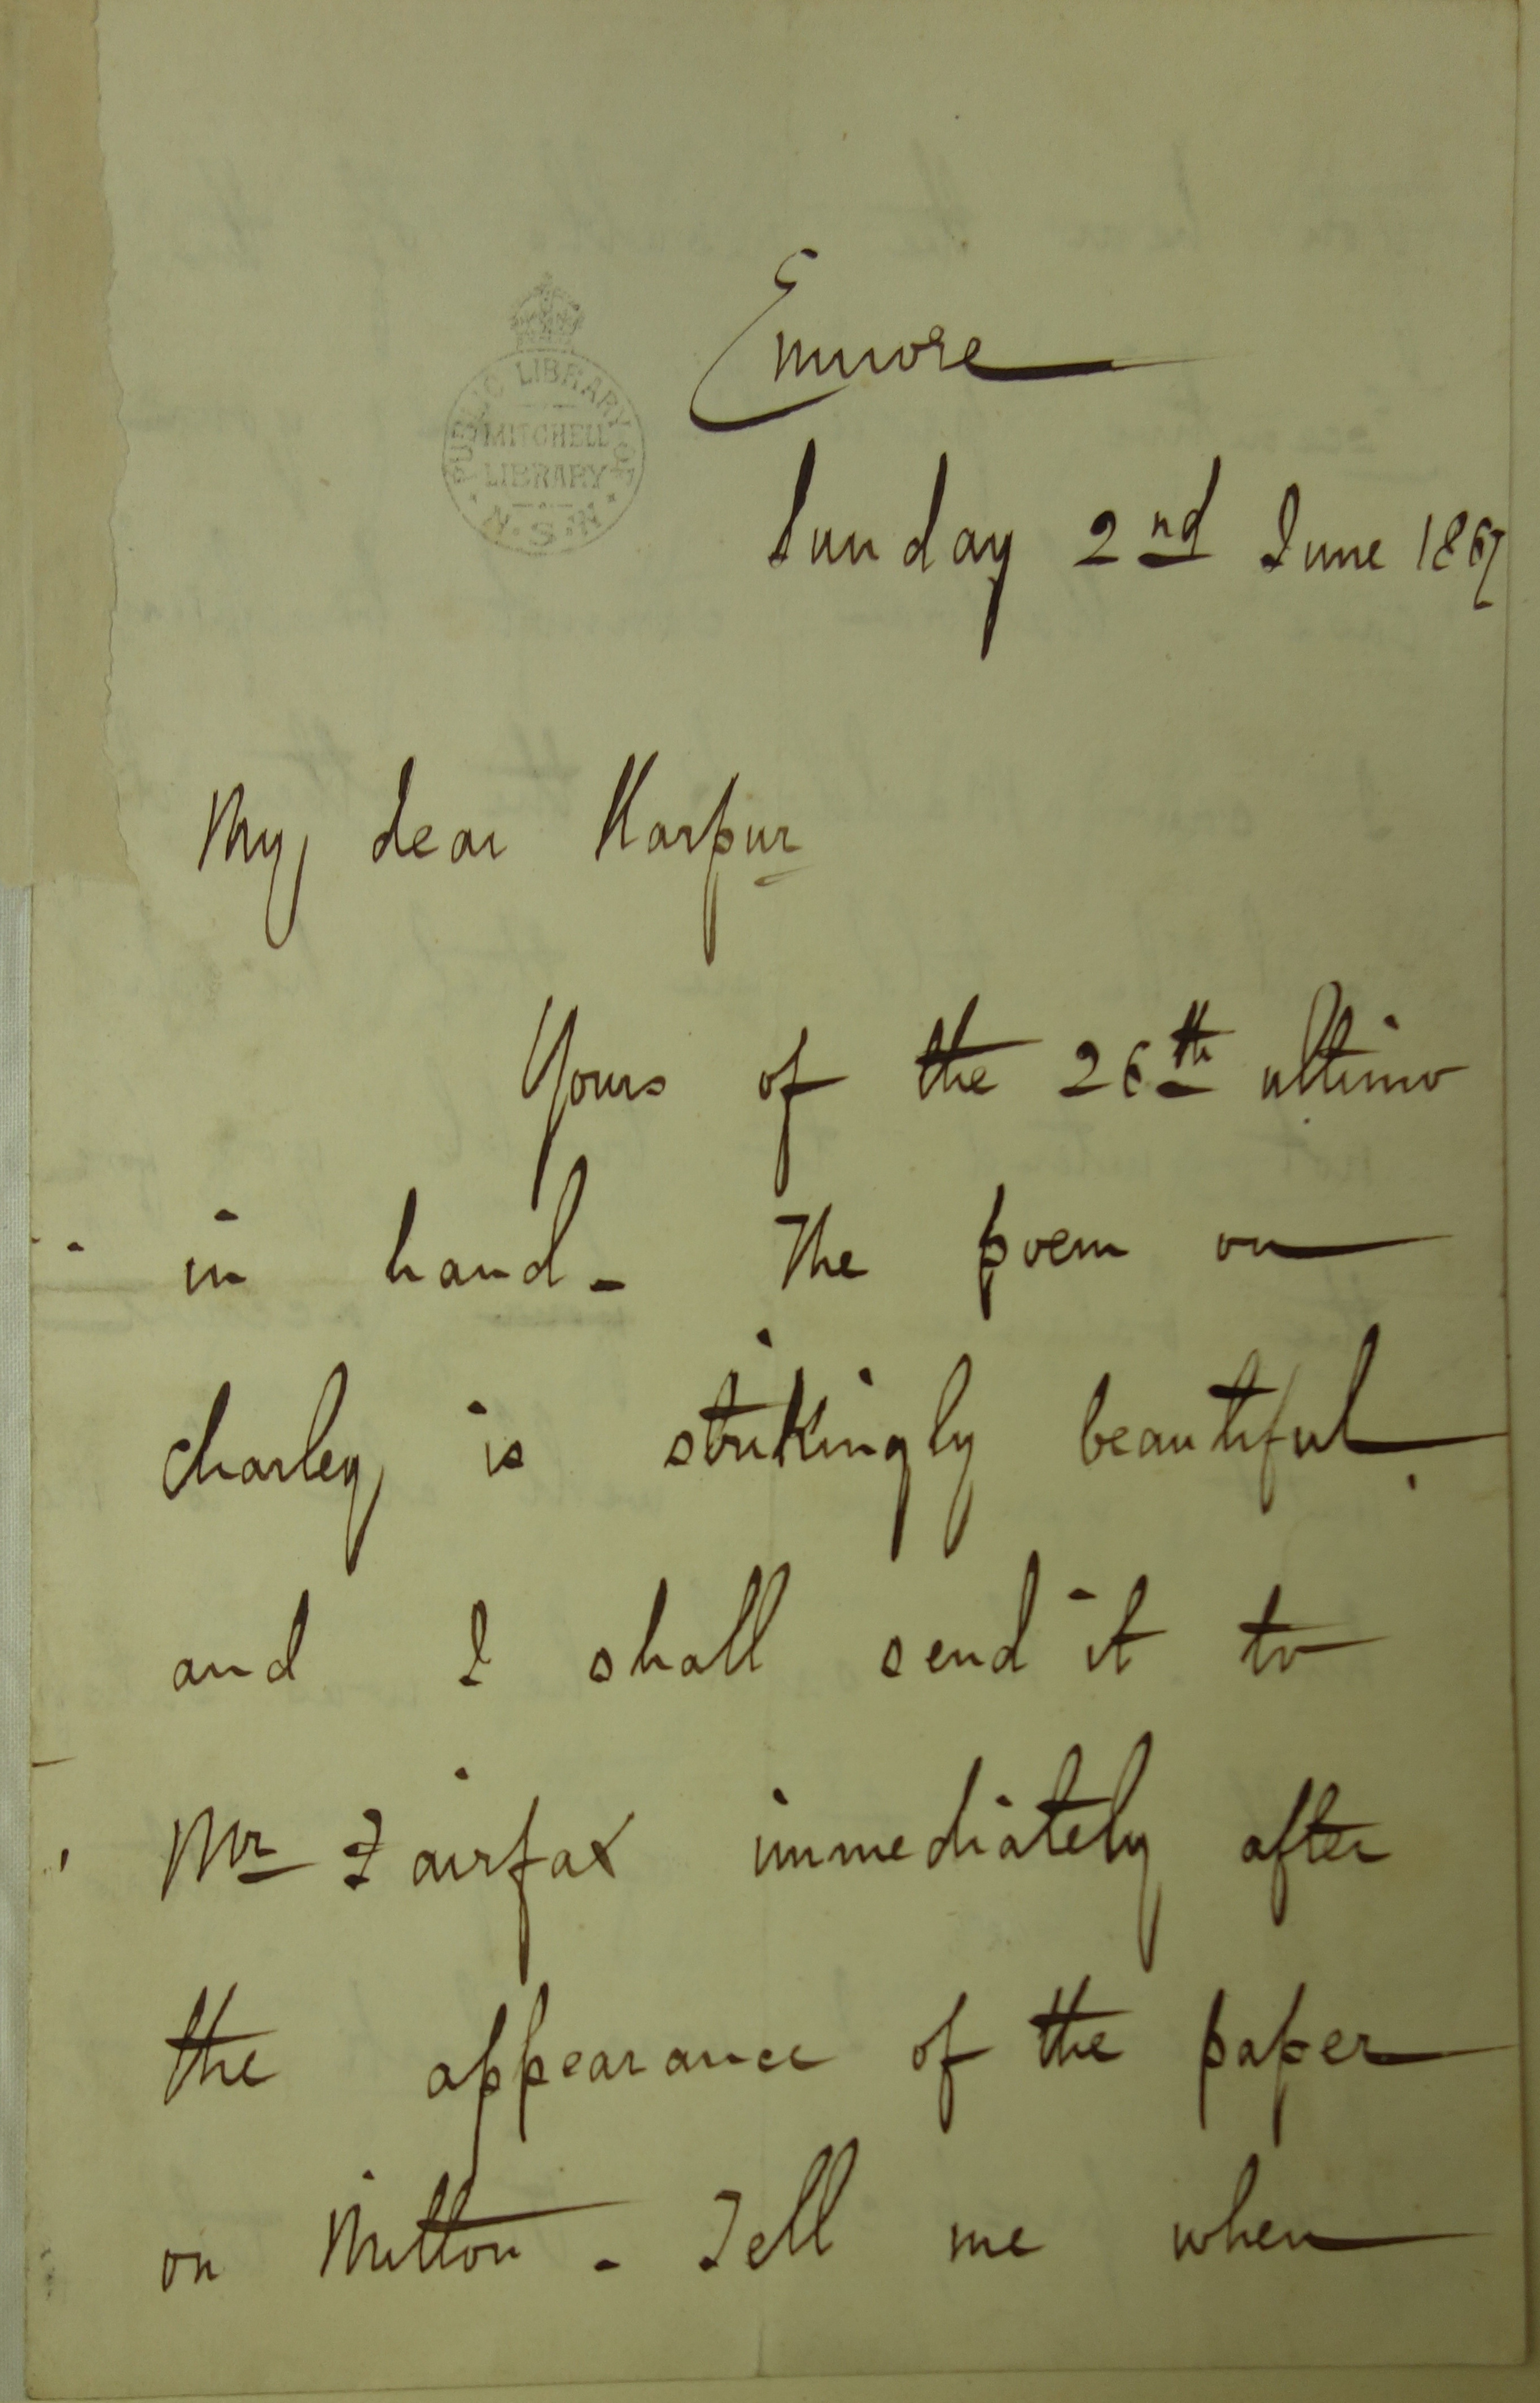 Enmore
PUBLIC LIBRARY OF
MITCHELL
LIBRARY
N.S.W.
Sunday 2nd June 1867
My dear Harpur
Yours of the 26th ultimo
in hand - The poem on
Charley is strikingly beautiful,
and I shall send it to
Mr Fairfax immediately after
the appearance of the paper
on Milton - Tell me when